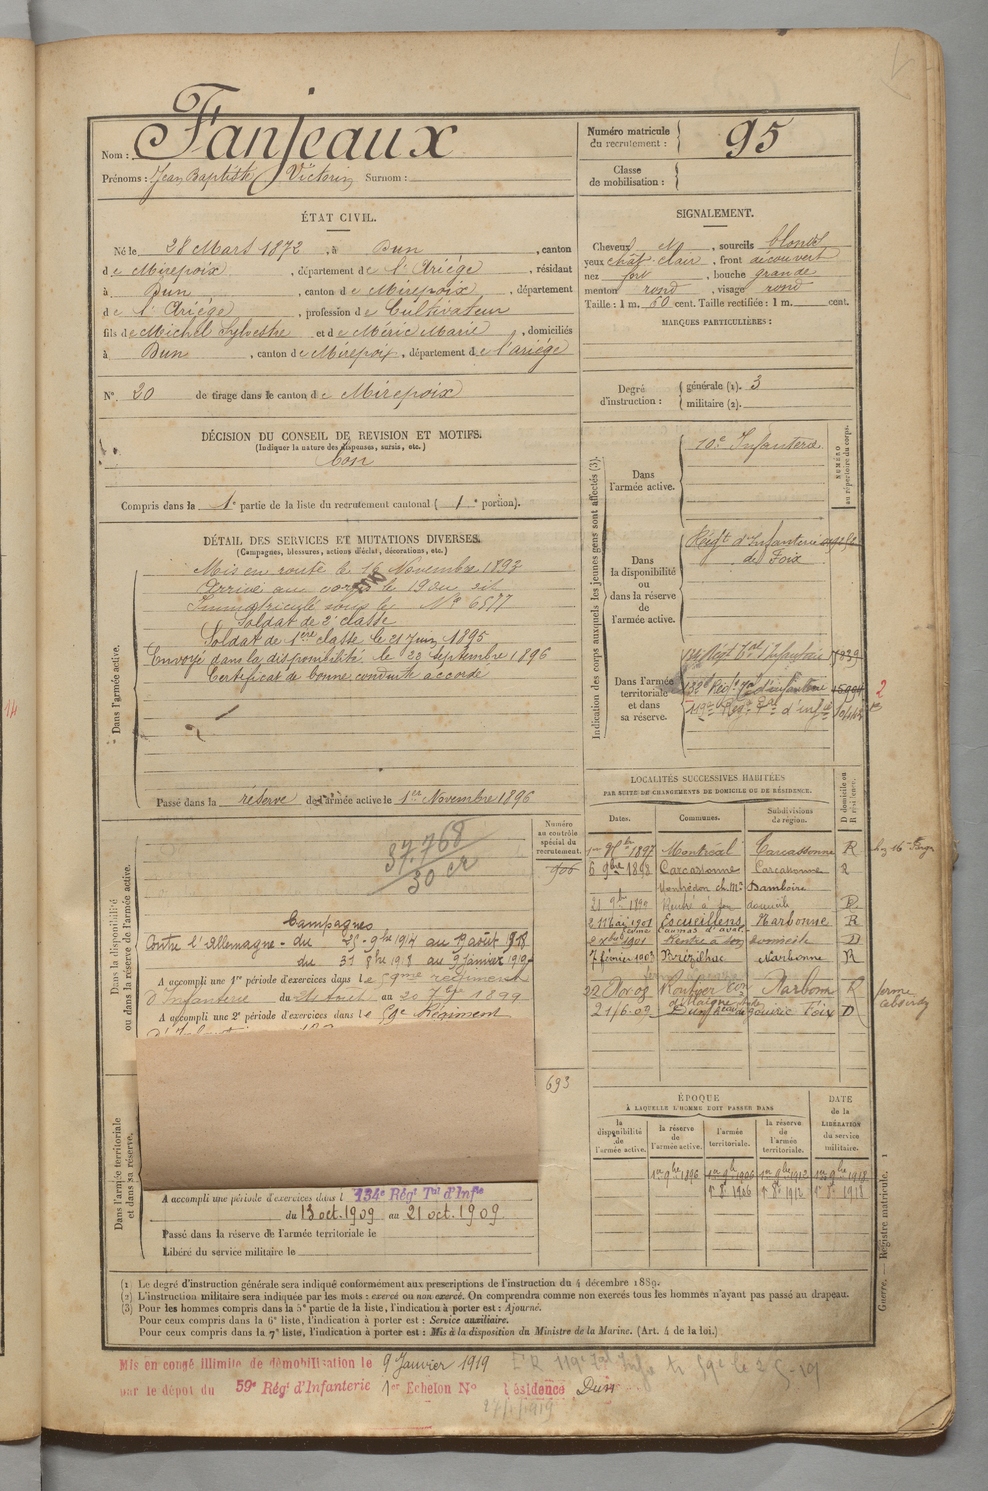 Nom : Fanjeaux
Prénoms : Jean Baptiste Victorin Surnom :
Numéro matricule du recrutement : 95
Classe de mobilisation :
ÉTAT CIVIL.
Né le 28 Mars 1872, à Dun, canton
de Mirepoix, département de l'Ariége, résidant
à Dun, canton de Mirepoix, département
de l'Ariége, profession de Cultivateur
fils de Michel Sylvestre et de Méric Marie, domiciliés
à Dun, canton de Mirepoix, département de l'ariége
N° 20 de tirage dans le canton de Mirepoix
DÉCISION DU CONSEIL DE REVISION ET MOTIFS.
(Indiquer la nature des dispenses, sursis, etc.)
bon
Compris dans la 1e partie de la liste du recrutement cantonal (1e portion).
SIGNALEMENT.
Cheveux , sourcils blonds
yeux chât. clair, front découvert
nez , bouche grande
menton rond, visage rond
Taille : 1 m. 60 cent. Taille rectifiée : 1 m. cent.
MARQUES PARTICULIÈRES :
Degré d'instruction : générale (1). 3
militaire (2).
DÉTAIL DES SERVICES ET MUTATIONS DIVERSES.
(Campagnes, blessures, actions d'éclat, décorations, etc.)
Dans l'armée active.
Mis en route le 16 Novembre 1893
Arrivé au corps le 19 du dit
Immatriculé sous le No 6577
Soldat de 2e classe
Soldat de 1ère classe le 21 Juin 1895
Envoyé dans la disponibilité le 23 Septembre 1896
Certificat de bonne conduite accordé
Passé dans la réserve de l'armée active le 1er Novembre 1896
Indication des corps auxquels les jeunes gens sont affectés (3).
NUMÉRO au répertoire du corps.
Dans l'armée active.
10e Infanterie
Dans la disponibilité ou dans la réserve de l'armée active.
Régt d'Infanterie
de Foix
Dans l'armée territoriale et dans sa réserve.
134 Régt Tal d'Infanterie
132e Régt Tal d'infanterie
119e Régt Tal d'infie
2
LOCALITÉS SUCCESSIVES HABITÉES
PAR SUITE DE CHANGEMENTS DE DOMICILE OU DE RÉSIDENCE.
Dates. Communes. Subdivisions de région. D domicile ou R résidence.
1er 9bre 1897 Montréal Carcassonne R
6 9bre 1898 Carcassonne Carcassonne R
21 9bre 1899 Rentré à son domicile D
2 Mai 1901 Escueillens Narbonne R
1901 Rentré à son domicile D
7 février 1903 Brézilhac Narbonne R
Narbonne R
21/6.09 Dun Foix D
ferme
Dans la disponibilité ou dans la réserve de l'armée active.
Numéro au contrôle spécial du recrutement.
906
37.768
30 cr
Campagnes
Contre l'Allemagne - du 25-9bre 1914 au août 1918
du 31 8bre 1918 au 9 Janvier 1919
A accompli une 1re période d'exercices dans le 59me régiment
d'Infanterie du 24 Août au 20 7bre 1899
A accompli une 2e période d'exercices dans le 59e Régiment
693
Dans l'armée territoriale et dans sa réserve.
A accompli une période d'exercices dans l 134e Régt Tal d'Infie
du 13 oct. 1909 au 21 oct. 1909
Passé dans la réserve de l'armée territoriale le
Libéré du service militaire le
ÉPOQUE
À LAQUELLE L'HOMME DOIT PASSER DANS
DATE de la LIBÉRATION du service militaire.
la disponibilité de l'armée active. la réserve de l'armée active. l'armée territoriale. la réserve de l'armée territoriale.
1er 9bre 1896 1er 9bre 1906 1er 9bre 1912 1er 9bre 1918
1r 8e 1906 1r 8e 1912 1r 8e 1918
Guerre. — Registre matricule. 1
(1) Le degré d'instruction générale sera indiqué conformément aux prescriptions de l'instruction du 4 décembre 1889.
(2) L'instruction militaire sera indiquée par les mots : exercé ou non exercé. On comprendra comme non exercés tous les hommes n'ayant pas passé au drapeau.
(3) Pour les hommes compris dans la 5e partie de la liste, l'indication à porter est : Ajourné.
Pour ceux compris dans la 6e liste, l'indication à porter est : Service auxiliaire.
Pour ceux compris dans la 7e liste, l'indication à porter est : Mis à la disposition du Ministre de la Marine. (Art. 4 de la loi.)
Mis en congé illimité de démobilisation le 9 Janvier 1919
par le dépot du 59e Régt d'Infanterie 1er Echelon No Résidence Dun
27/1/1919